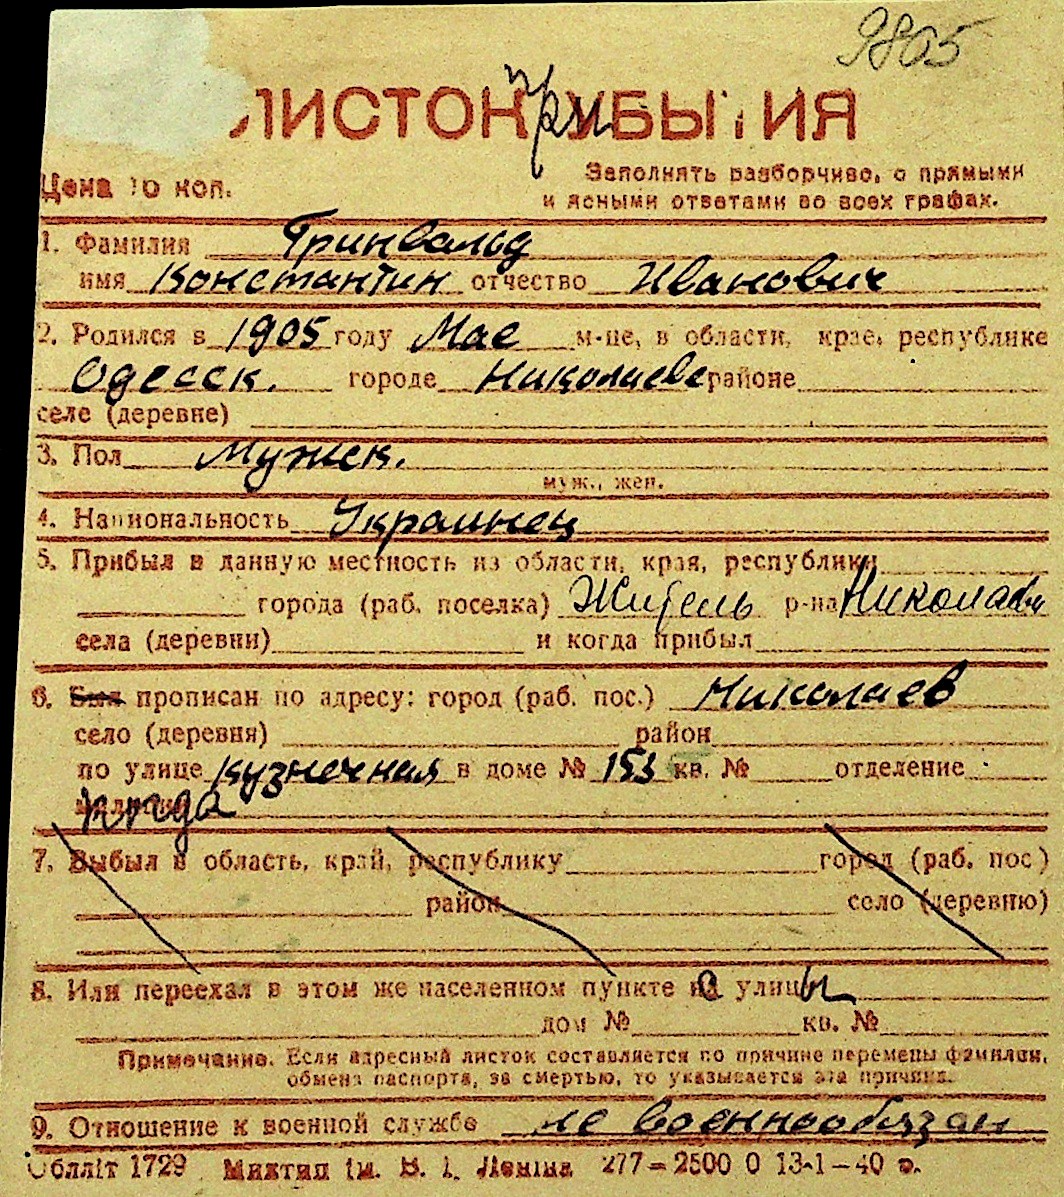 9805
ЛИСТОК при УБЫТИЯ
Цена 10 коп.
Заполнять разборчиво, с прямыми
и ясными ответами во всех графах.
1. Фамилия Гринвальд
имя Константин отчество Иванович
2. Родился в 1905 году Мае м-це, в области, крае, республике
Одесск. городе Николаеве районе
селе (деревне)
3. Пол Мужск.
муж., жен.
4. Национальность Украинец
5. Прибыл в данную местность из области, края, республики
города (раб. поселка) Житель р-на Николаев
села (деревни) и когда прибыл
6. Был прописан по адресу: город (раб. пос.) Николаев
село (деревня) район
по улице Кузнечная в доме № 153 кв. № отделение
7. Выбыл в область, край, республику город (раб. пос)
район село (деревню)
8. Или переехал в этом же населенном пункте на улицы
дом № кв. №
Примечание. Если адресный листок составляется по причине перемены фамилии,
обмена паспорта, за смертью, то указывается эта причина.
9. Отношение к военной службе не военнообязан
Облліт 1729 Миктип ім. В. І. Леніна 277—2500 0 13-1—40 р.